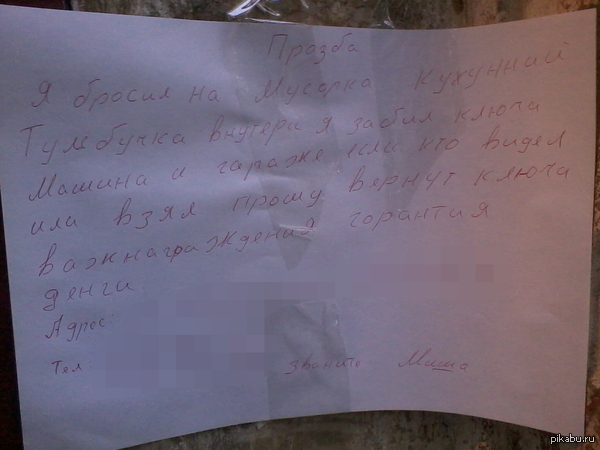 Прозба
Я бросил на Мусорка кухунний
Тумбучка внутери я забил ключа
Машина и гараже если кто видел
или взял прошу вернут ключа
важнаграждения горантия
денги
Адрес:
Тел
звоните Миша
pikabu.ru